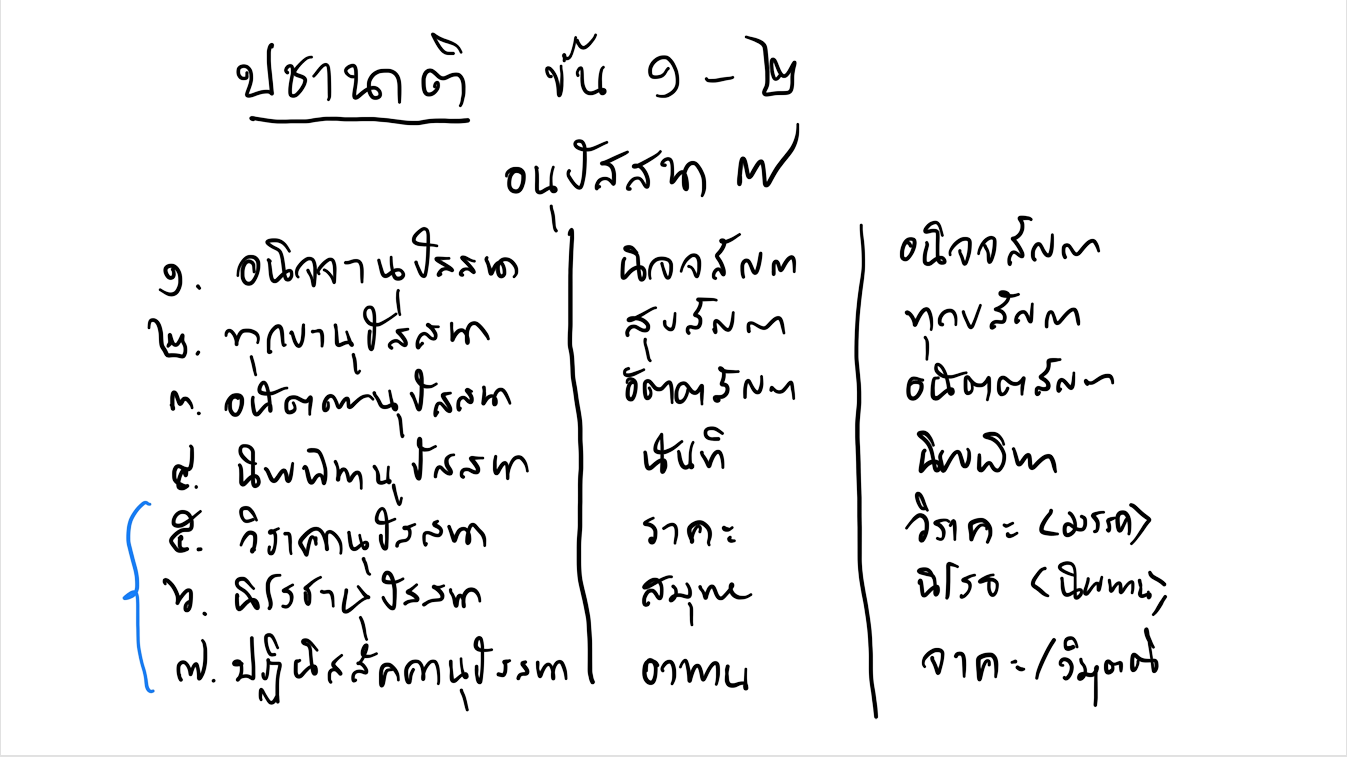 ปชานาติ ขั้น ๑ - ๒
อนุปัสสนา ๗
๑. อนิจจานุปัสสนา นิจจสัญญา อนิจจสัญญา
๒. ทุกขานุปัสสนา สุขสัญญา ทุกขสัญญา
๓. อนัตตานุปัสสนา อัตตสัญญา อนัตตสัญญา
๔. นิพพิทานุปัสสนา นันทิ นิพพิทา
๕. วิราคานุปัสสนา ราคะ วิราคะ <มรรค>
๖. นิโรธานุปัสสนา สมุทย นิโรธ <นิพพาน>
๗. ปฏินิสสัคคานุปัสสนา อาทาน จาคะ/วิมุตติ